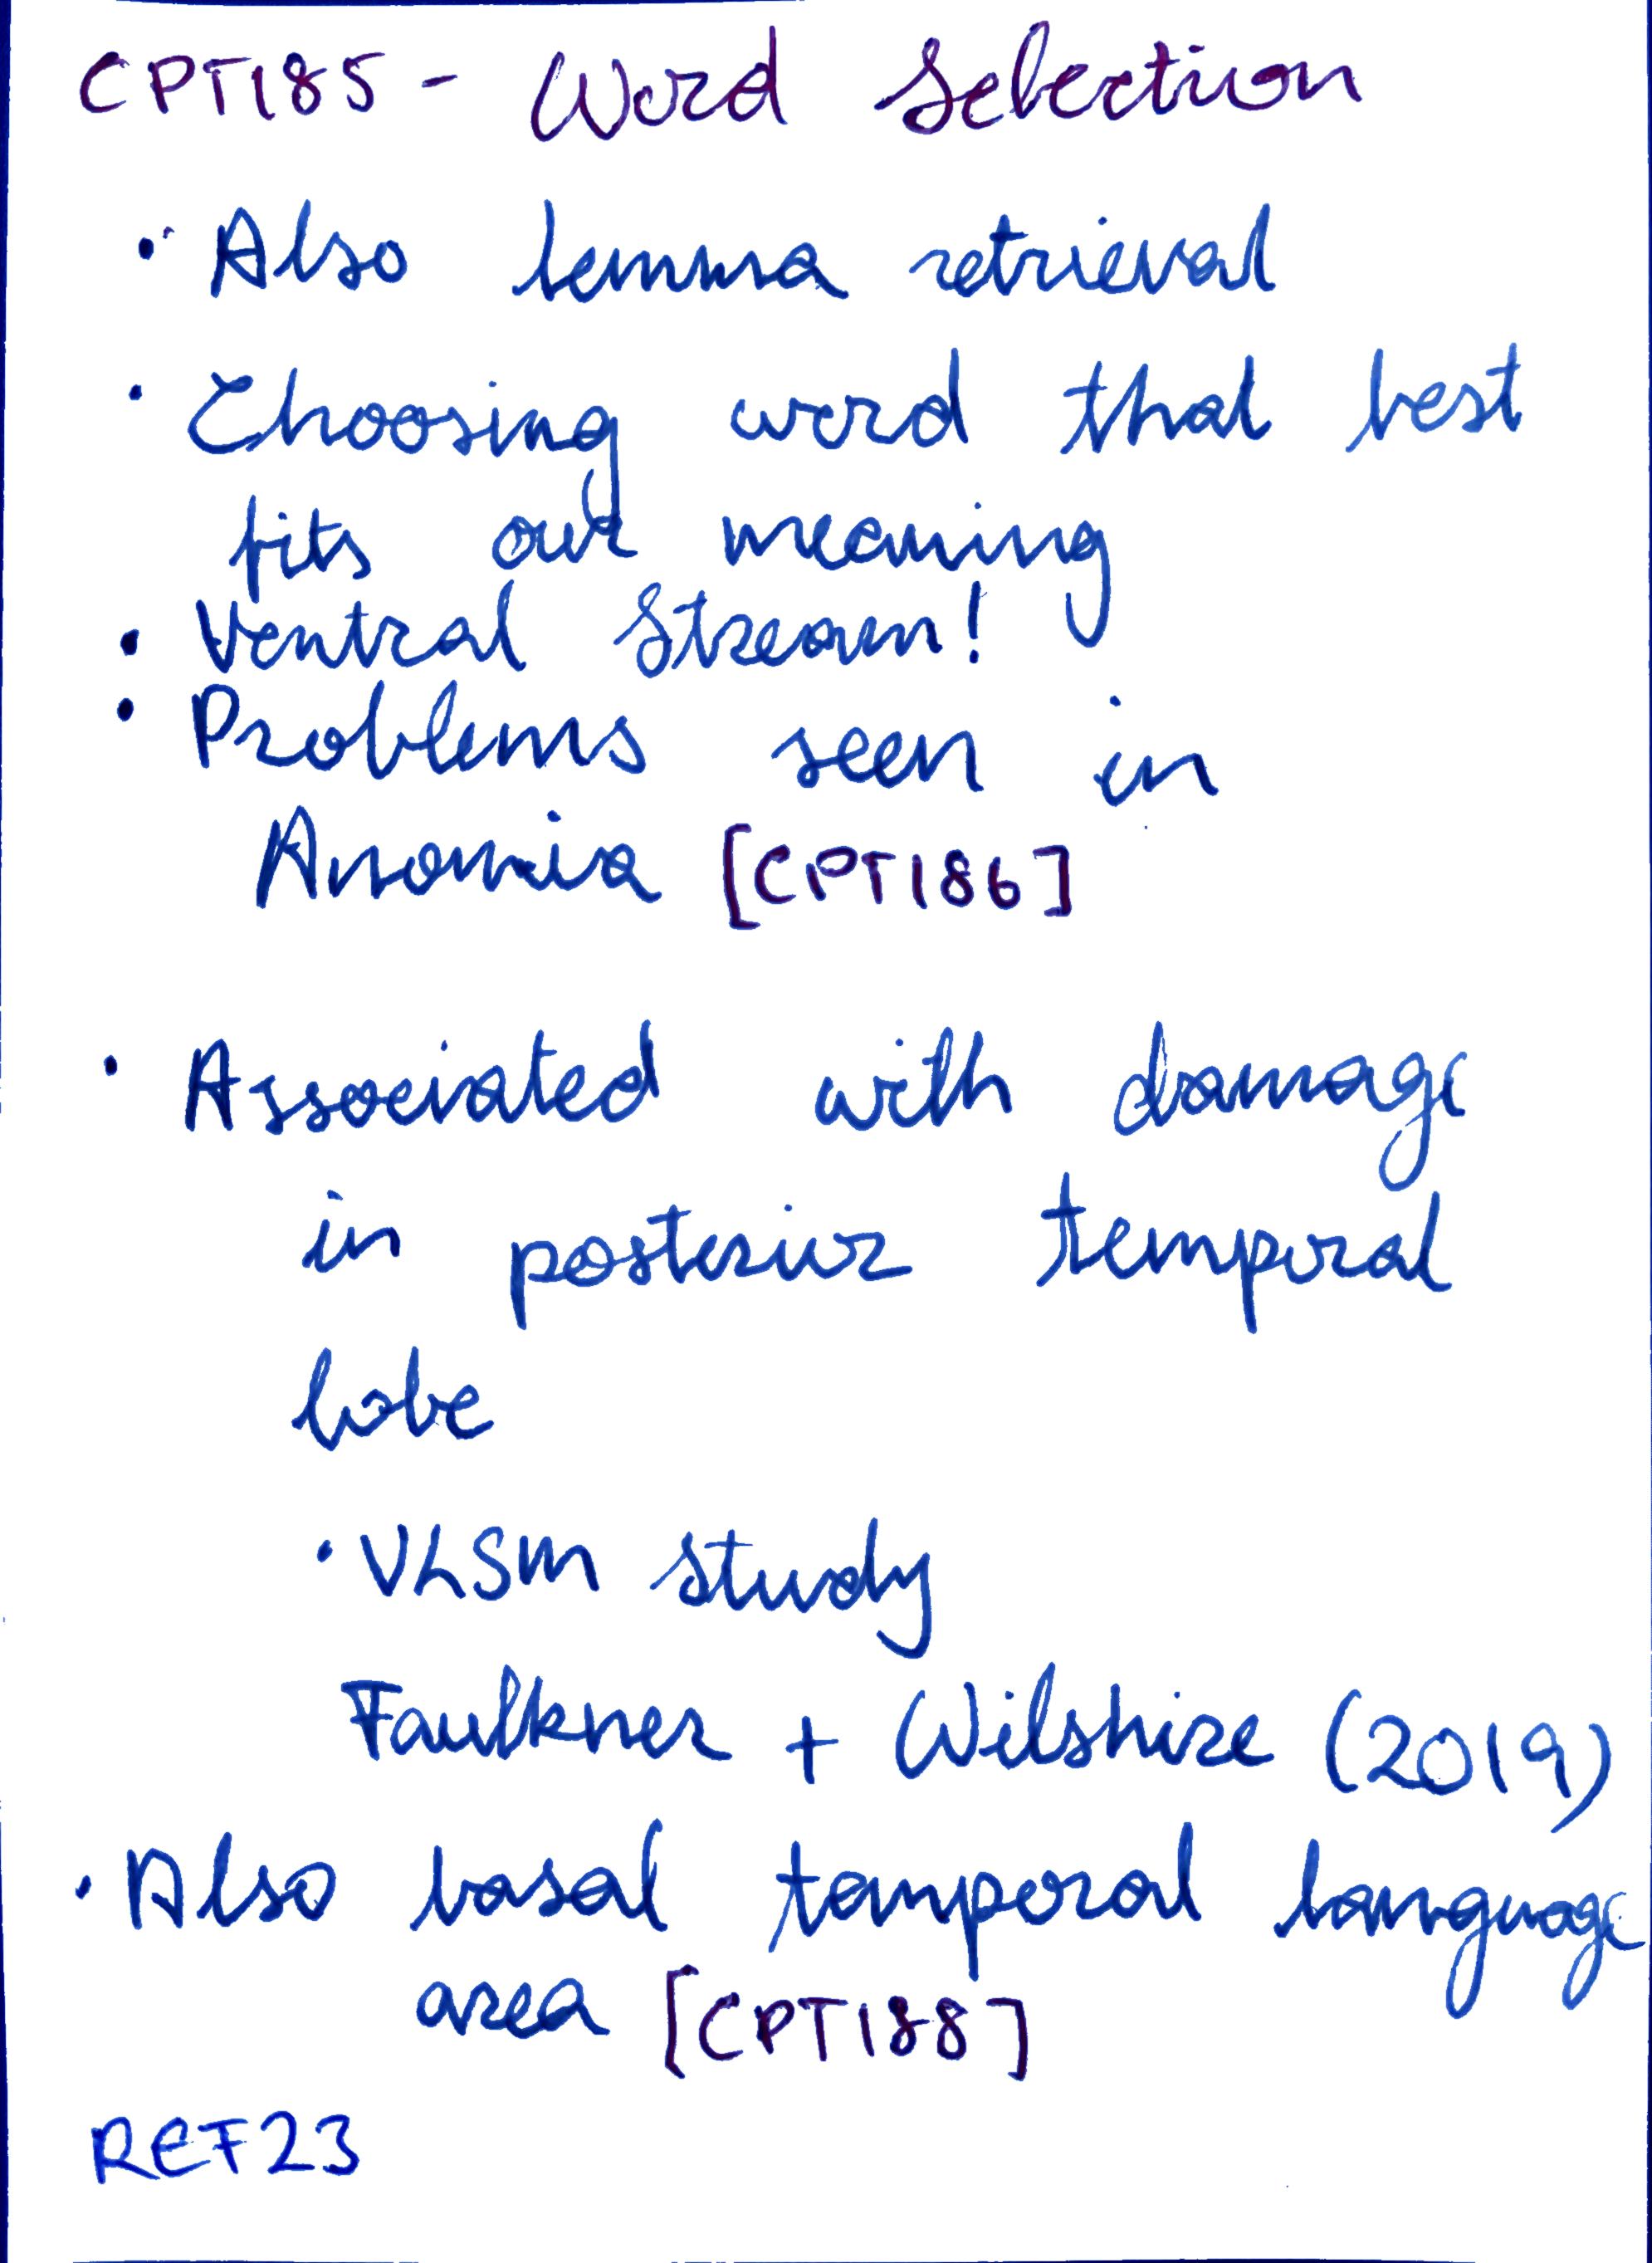 CPT185 - Word Selection
• Also lemma retrieval
• Choosing word that best
fits our meaning
• Ventral Stream!
• Problems seen in
Anomia [CPT186]
• Associated with damage
in posterior temporal
lobe
• VLSM study
Faulkner + Wilshire (2019)
• Also basal temporal language
area [CPT188]
REF23